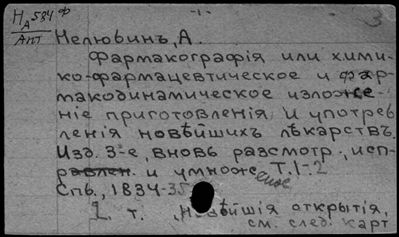 НА534 Ф -1-
Апт 3
Нелюбинъ, А.
Фармакографія или хими-
ко-фармацевтическое и фар-
макодинамическое изложе-
ніе приготовленія и употреб
ленія новѣйшихъ лѣкарствъ.
Изд. 3-е, вновь разсмотр., исп-
равлен. и умножен
ное Т. 1-2
Спб., 1834-35
2 т. Новѣйшія открытія,
см. след. карт